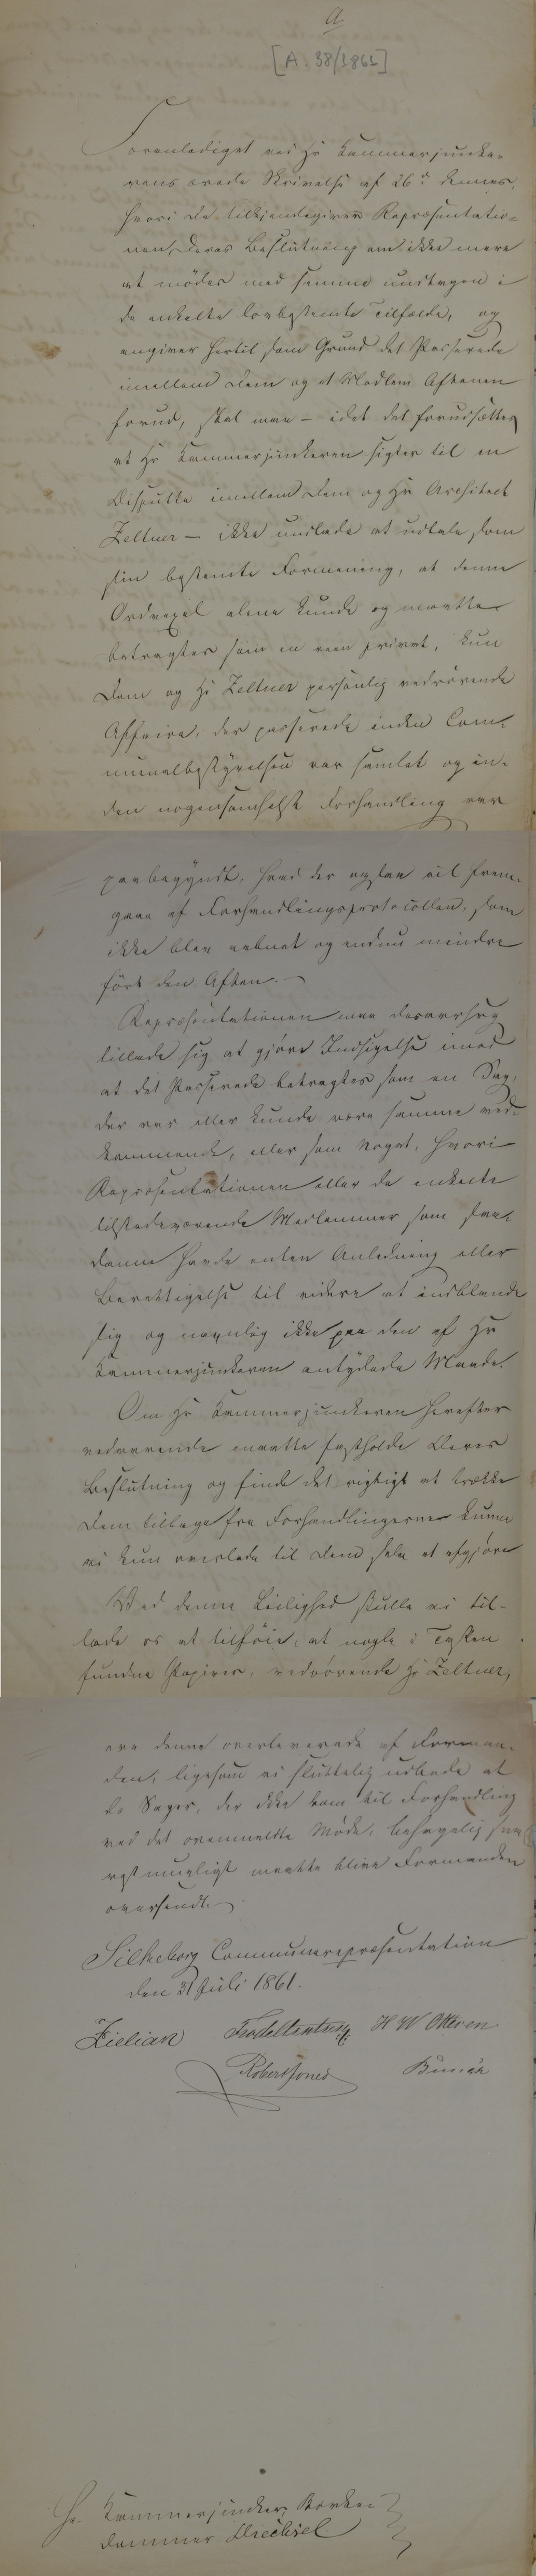 a
[A. 38/1861]
Foranlediget ved Hr Kammerjunke-
rens ærede Skrivelse af 26d dennes,
hvori De tilkjendegiver Repræsentatio-
nen, Deres Beslutning om ikke mere
at møde med samme undtagen i
de enkelte lovbestemte Tilfælde, og
angiver hertil som Grund det Passerede
imellem Dem og et Medlem Aftenen
forud, skal man – idet det forudsættes
at Hr Kammerjunkeren sigter til en
Dispute imellem Dem og Hr Architect
Zeltner – ikke undlade at udtale som
sin bestemte Formening, at denne
Ordvexel alene kunde og maatte
betragtes som en reen privat, kun
Dem og Hr Zeltner personlig vedrørende
Affaire, der passerede inden Com-
munalbestyrelsen var samlet og in-
den nogensomhelst Forhandling var
paabegyndt, hvad der ogsaa vil frem-
gaae af Forhandlingsprotocollen, som
ikke blev aabnet og endnu mindre
ført den Aften. –
Repræsentationen maa desaarsag
tillade sig at gjøre Indsigelse imod
at det Passerede betragtes som en Sag,
der var eller kunde være samme ved-
kommende, eller som Noget, hvori
Repræsentationen eller de enkelte
tilstedeværende Medlemmer som saa-
danne havde enten Anledning eller
Berettigelse til videre at indblande
sig og navnlig ikke paa den af Hr
Kammerjunkeren antydede Maade.
Om Hr Kammerjunkeren herefter
vedvarende maatte fastholde Deres
Beslutning og finde det rigtigt at trække
Dem tilbage fra Forhandlingerne kunne
vi kun overlade til Dem selv at afgjøre
Ved denne Leilighed skulle vi til-
lade os at tilføie, at nogle i Tasken
fundne Papirer, vedrørende Hr Zeltner,
ere denne overleverede af Forman-
den, ligesom vi sluttelig udbede at
de Sager, der ikke kom til Forhandling
ved det ovenmeldte Møde, behagelig saa-
vidt mueligt maatte blive Formanden
oversendt. –
Silkeborg Communerepræsentation
den 31 Juli 1861.
Zielian H W Ottesen
Robert Jones
Hr Kammerjunker, Birke-
dommer Drechsel